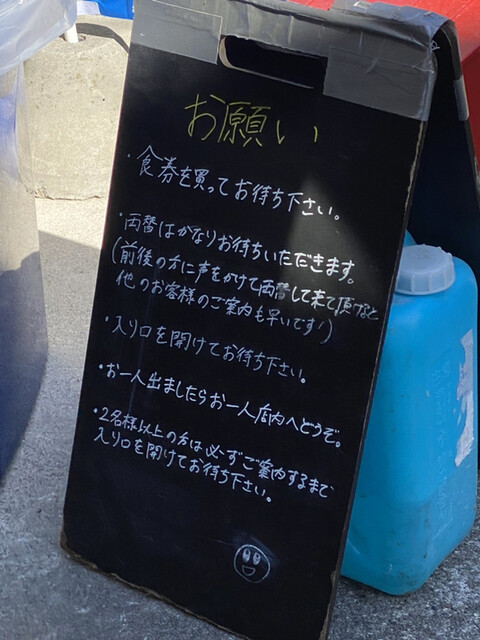 お願い
・食券を買ってお待ち下さい。
・両替はかなりお待ちいただきます。
(前後の方に声をかけて両替して来て頂けると
他のお客様のご案内も早いです!)
・入り口を開けてお待ち下さい。
・お一人出ましたらお一人店内へどうぞ。
・2名様以上の方は必ずご案内するまで
入り口を開けてお待ち下さい。